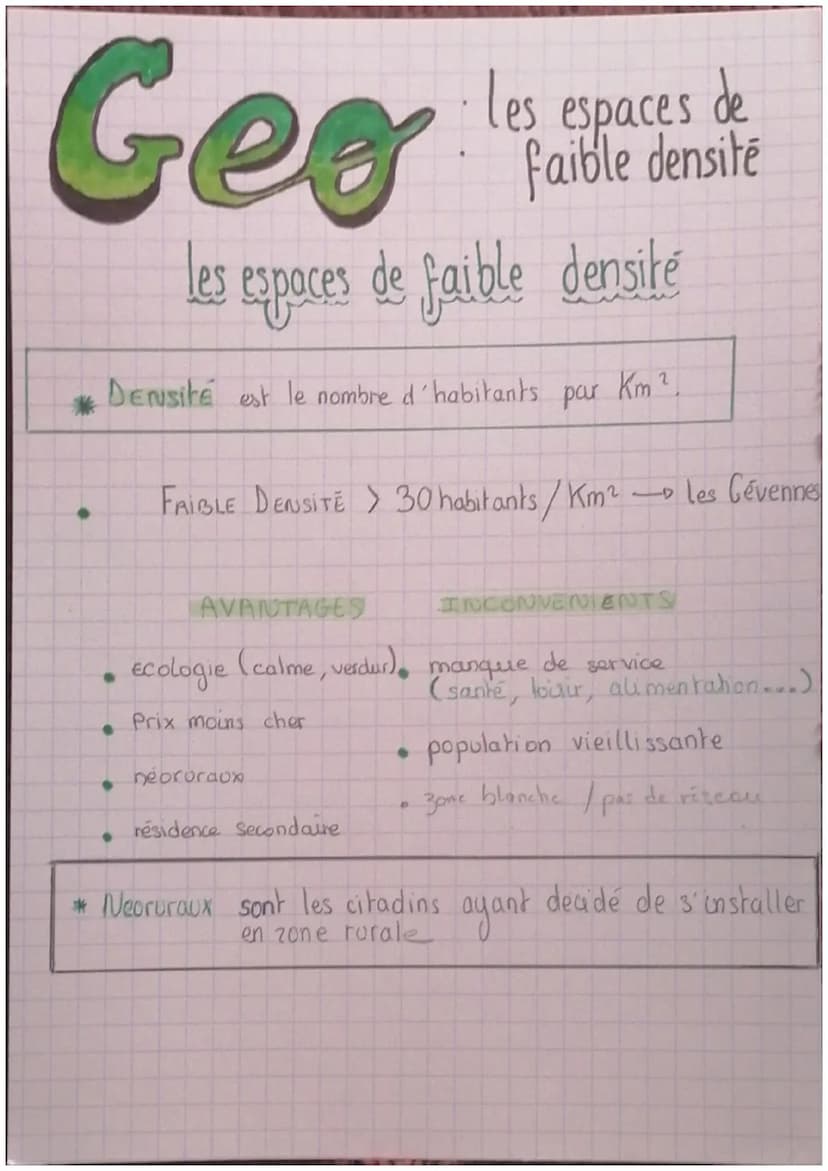 Geo : les espaces de
faible densité
les espaces de faible densité
* DENSITÉ est le nombre d'habitants par Km².
• FAIBLE DENSITÉ > 30 habitants/Km² → les Cévennes
AVANTAGES
INCONVENIENTS
• écologie (calme, verdur)
• Prix moins cher
• néoruraux
• résidence secondaire
• manque de service
(santé, loisir, alimentation...)
• population vieillissante
• zone blanche / pas de réseau
* Neoruraux sont les citadins ayant decidé de s'installer
en zone rurale